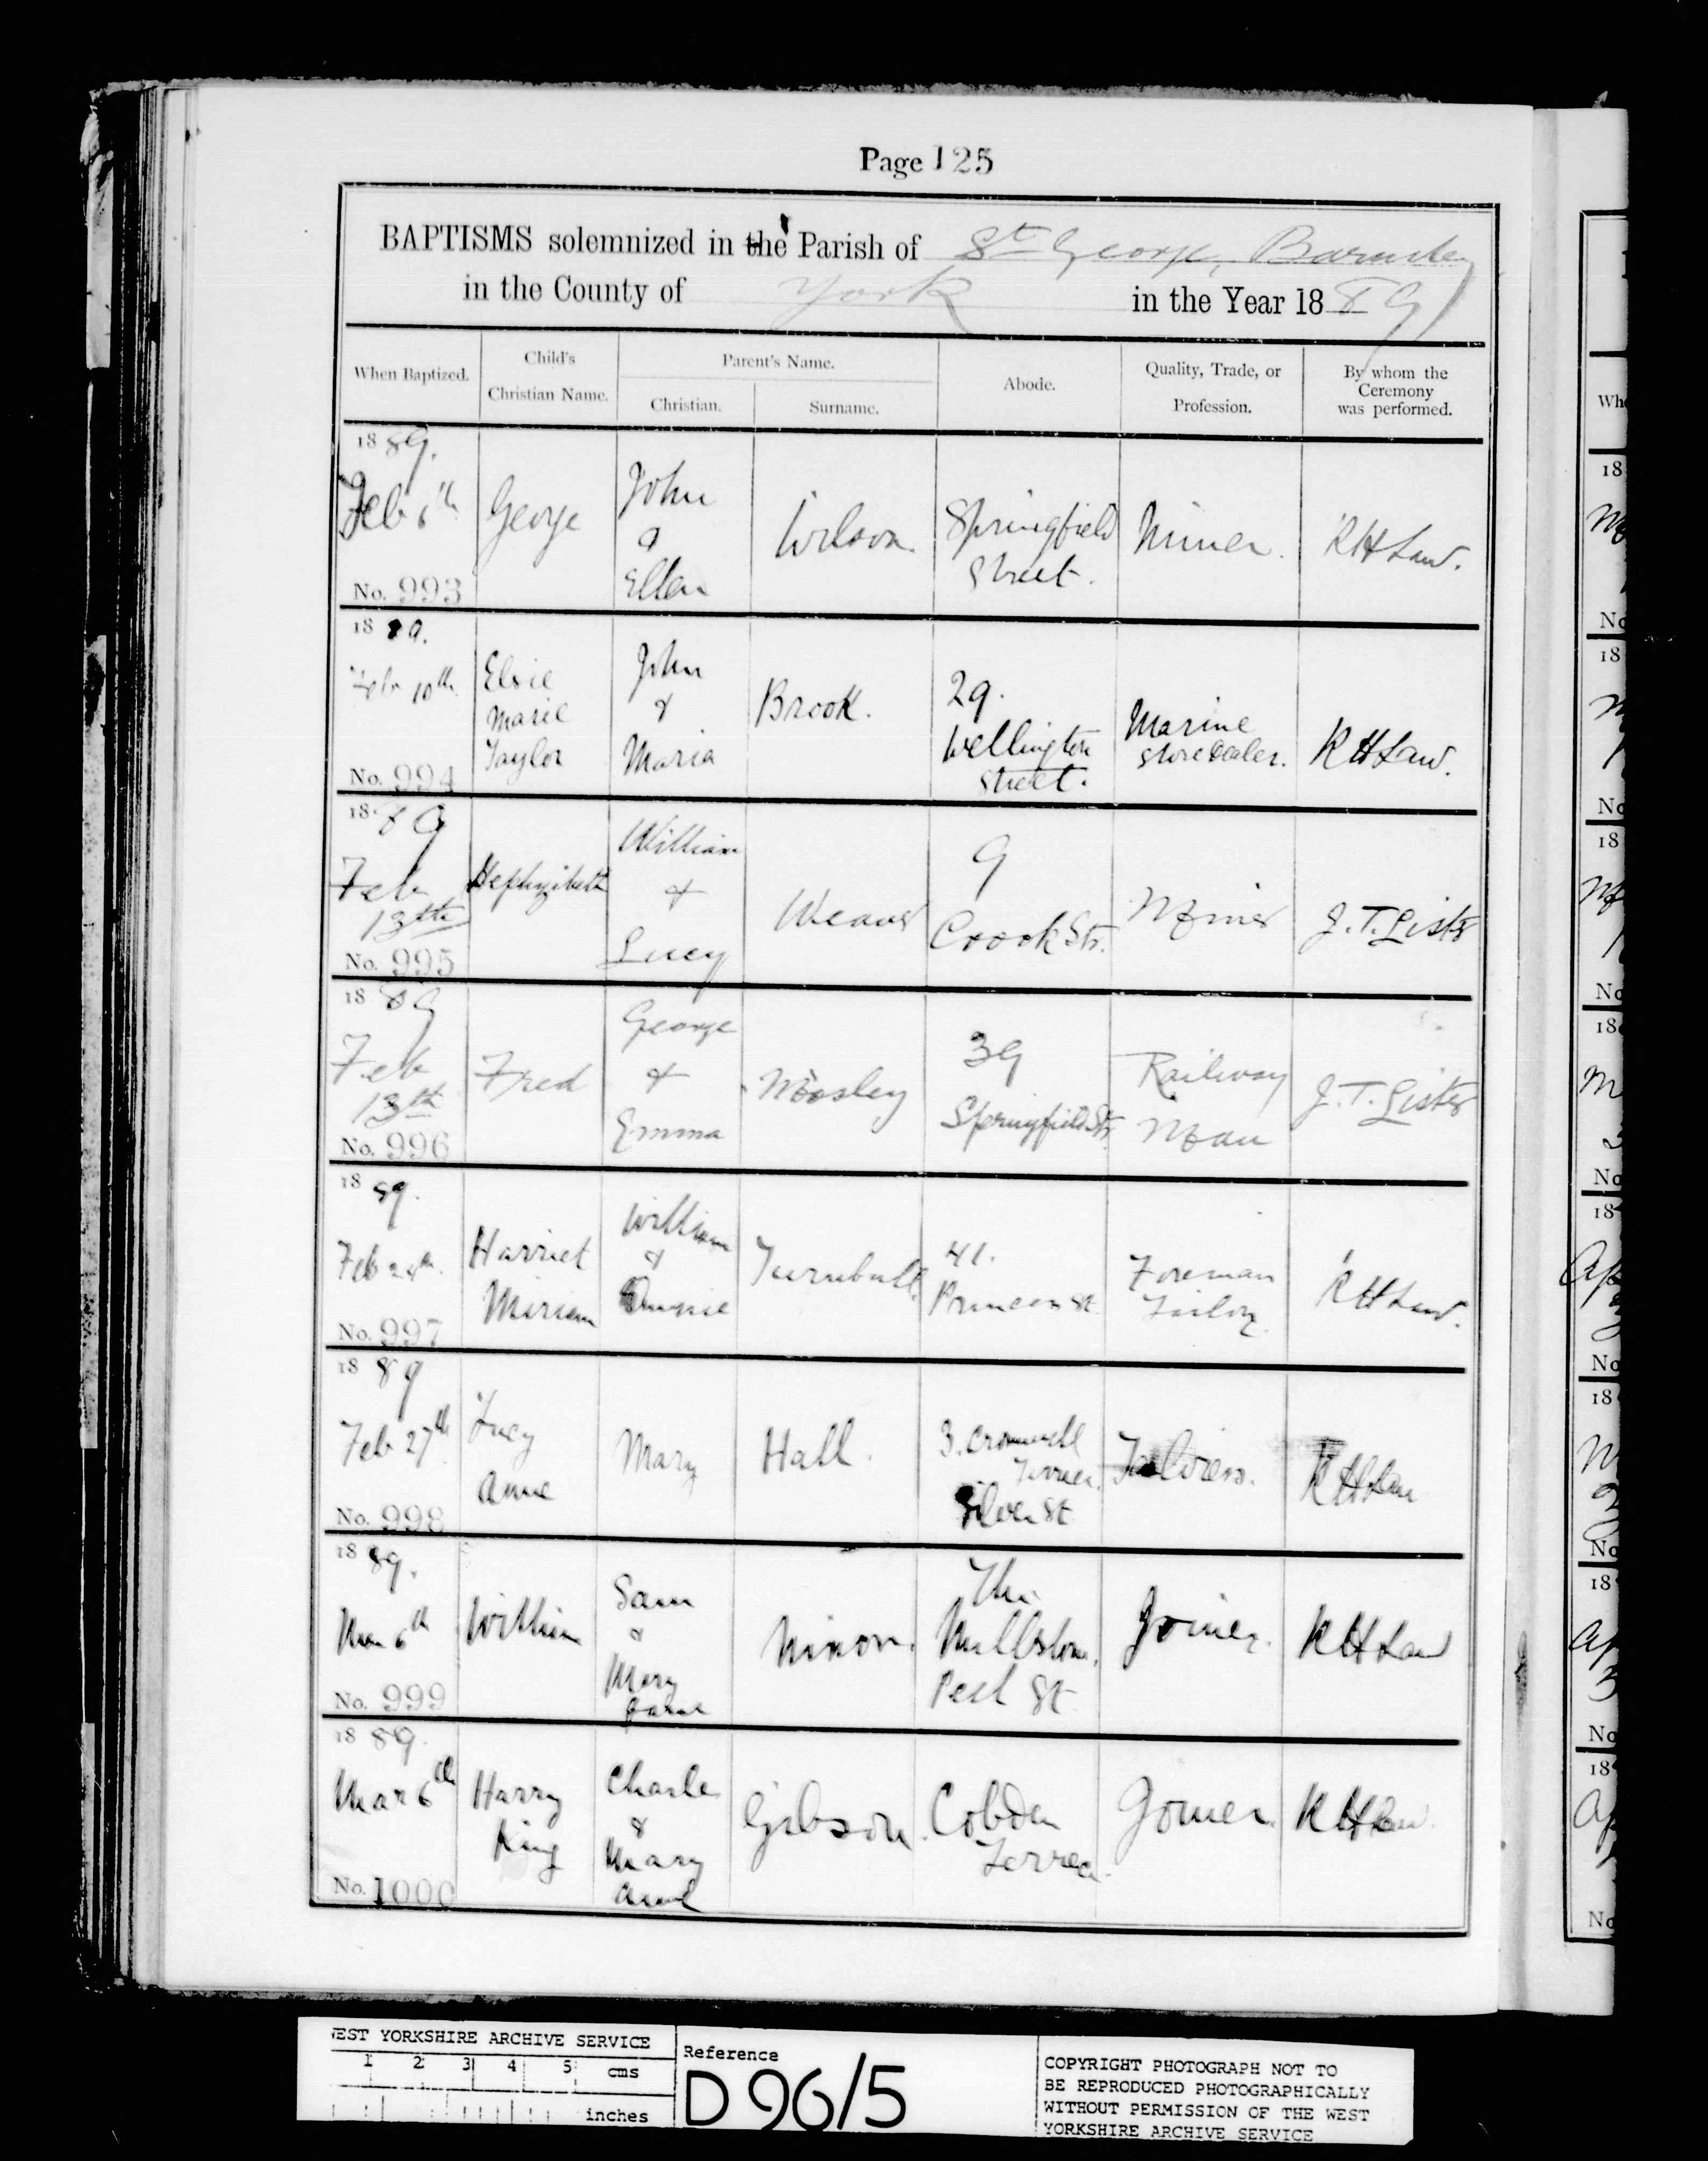 Page 125
BAPTISMS solemnized in the Parish of St George, Barnsley
in the County of York in the Year 1889
When Baptized.
Child's
Christian Name.
Parent's Name.
Christian.
Surname.
Abode.
Quality, Trade, or
Profession.
By whom the
Ceremony
was performed.
1889.
Feb 6th
No. 993
George
John
&
Ellen
Wilson.
Springfield
Street.
Miner.
RH Law.
1889.
Feb 10th
No. 994
Elsie
Marie
Taylor
John
&
Maria
Brook.
29.
Wellington
Street.
Marine
Store Dealer.
RH Law.
1889
Feb
13th
No. 995
Hephzibath
William
&
Lucy
Weaver
9
Crook Str.
Miner
J. T. Lister
1889
Feb
13th
No. 996
Fred
George
&
Emma
Mosley
39
Springfield Str.
Railway
Man
J. T. Lister
1889.
Feb
No. 997
Harriet
Miriam
William
&
Annie
Turnbull.
41.
Princess St
Foreman
Tailor
RH Law.
1889
Feb 27th
No. 998
Lucy
Anne
Mary
Hall.
3. Cromwell
Terrace.
Silver St
Tailoress.
RH Law
1889.
Mar 6th
No. 999
William
Sam
&
Mary
Jane
Nixon.
The
Millstone.
Peel St
Joiner.
RH Law
1889.
Mar 6th
No. 1000
Harry
King
Charles
&
Mary
Ann
Gibson.
Cobden
Terrace.
Joiner.
RH Law.
WEST YORKSHIRE ARCHIVE SERVICE
1 2 3 4 5 cms
inches
Reference
D96/5
COPYRIGHT PHOTOGRAPH NOT TO
BE REPRODUCED PHOTOGRAPHICALLY
WITHOUT PERMISSION OF THE WEST
YORKSHIRE ARCHIVE SERVICE